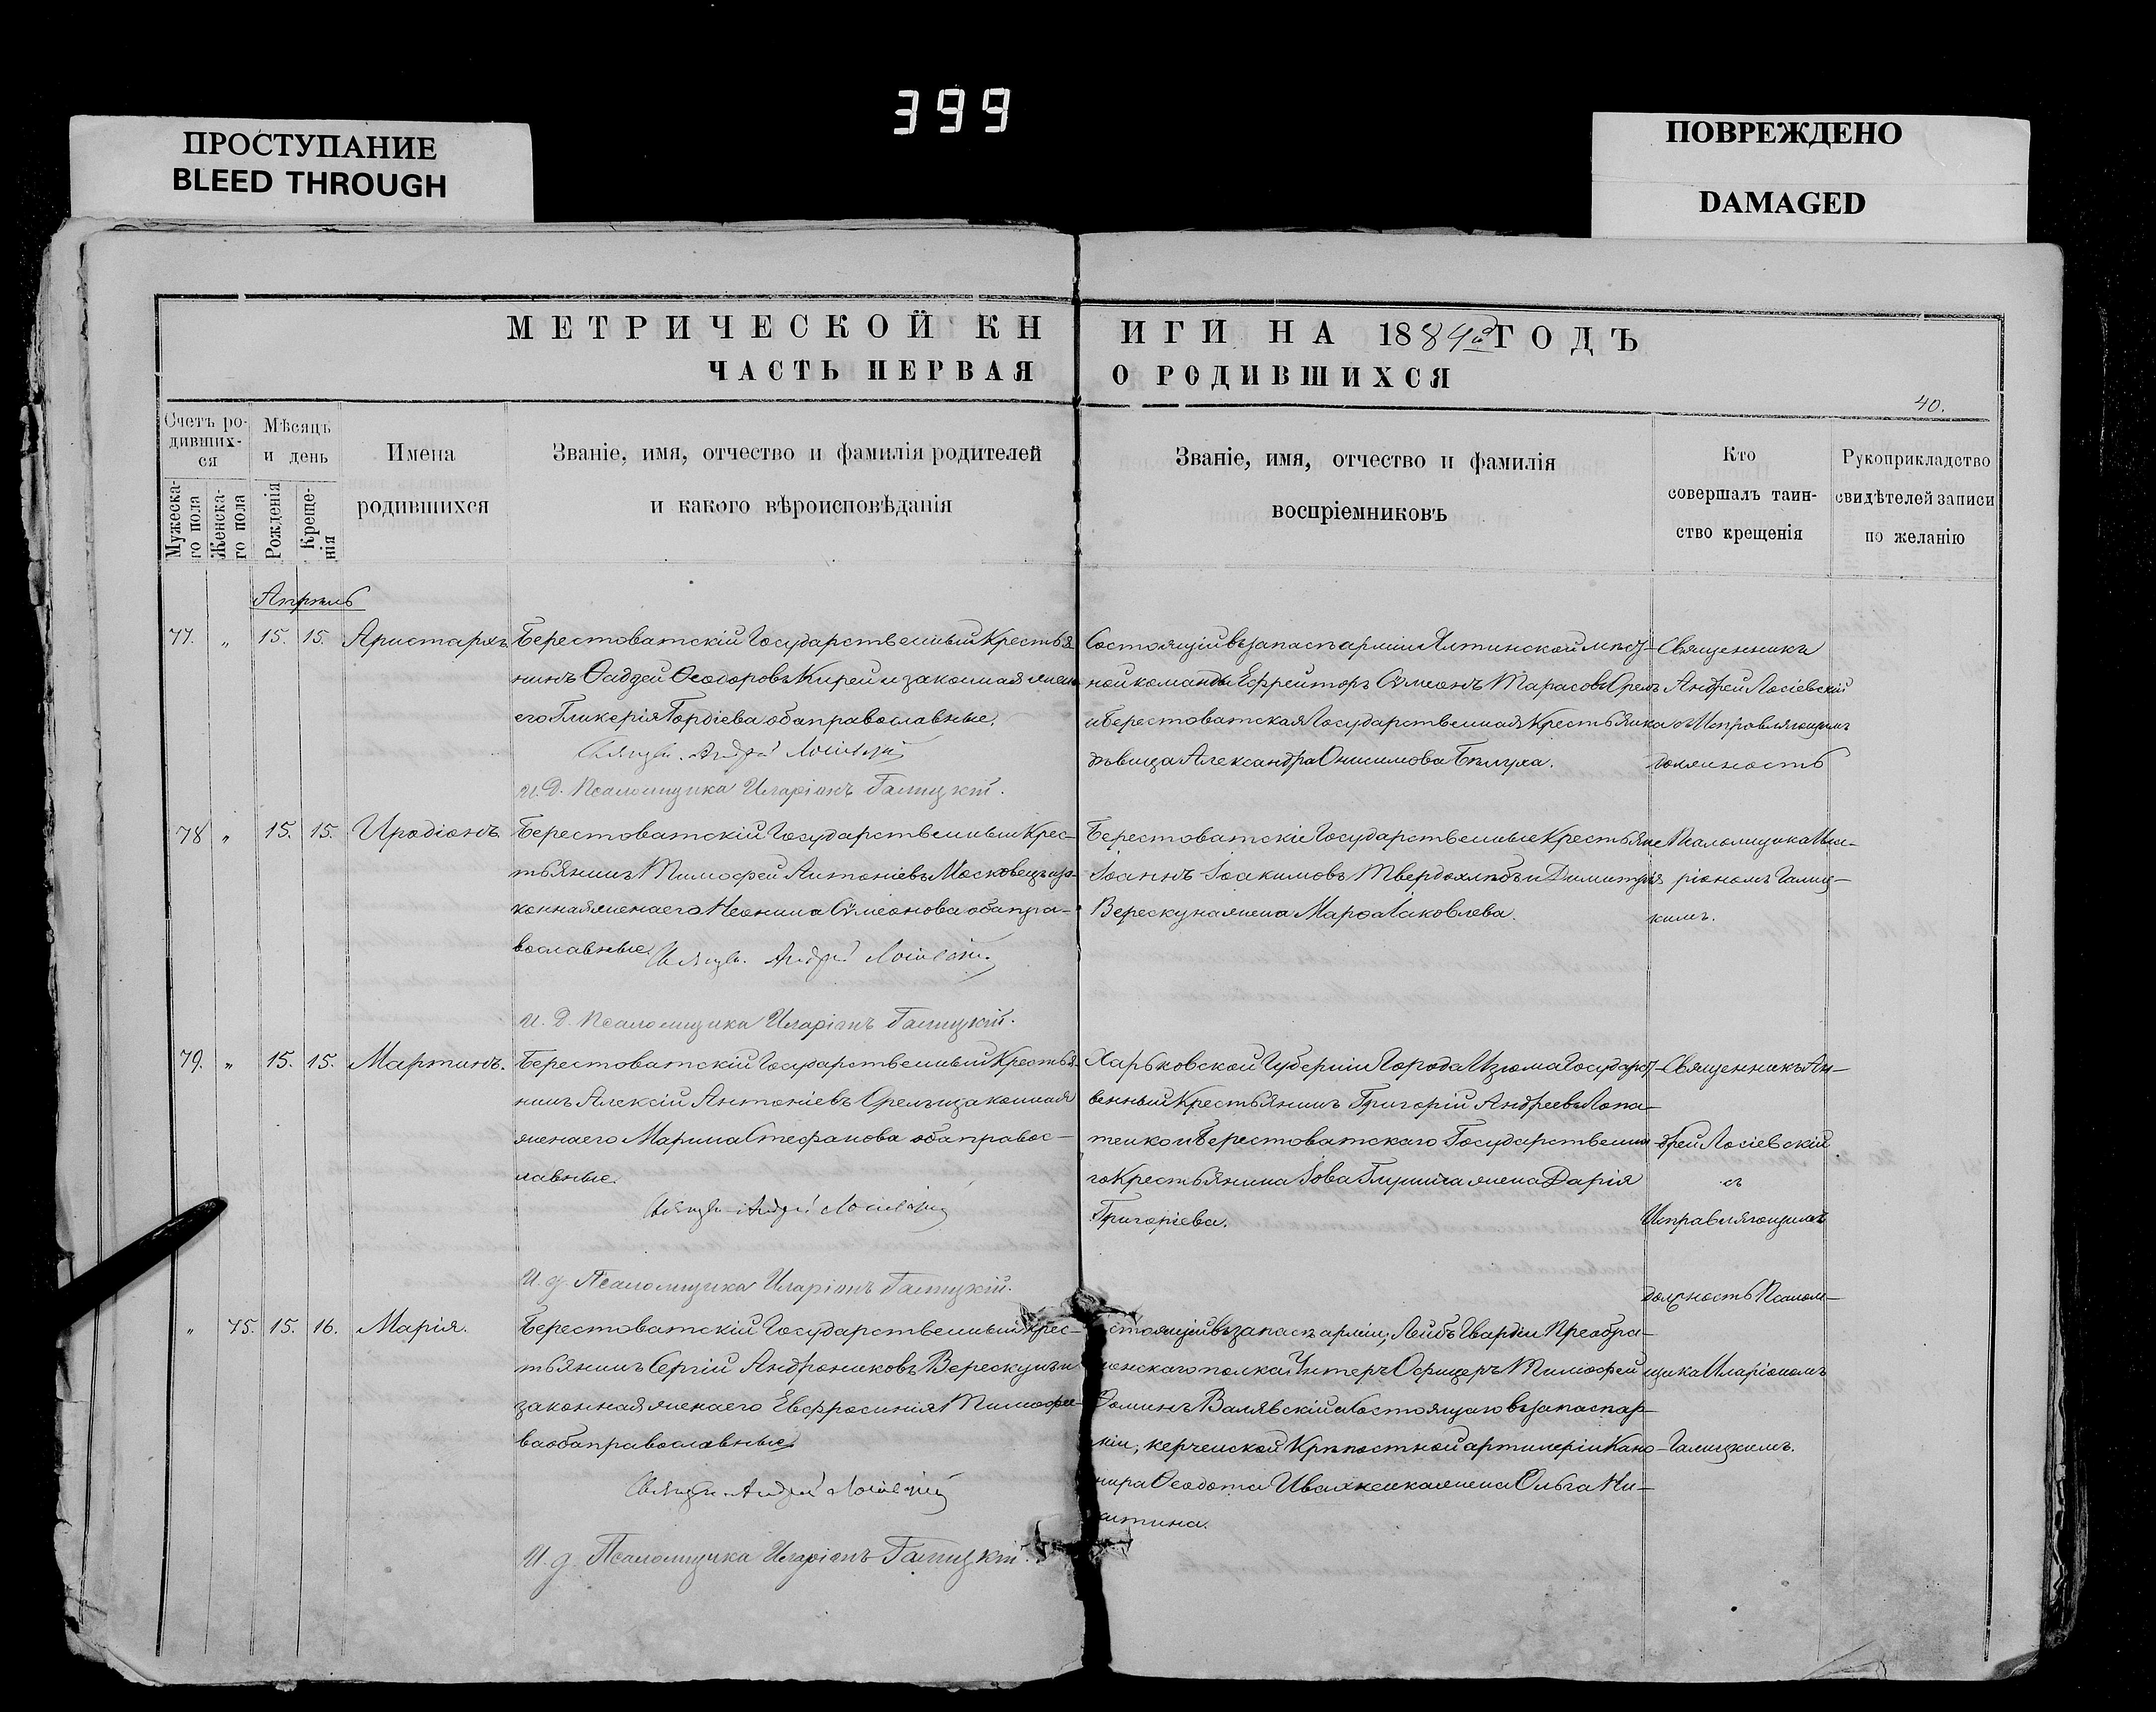 399
ПРОСТУПАНИЕ
BLEED THROUGH
ПОВРЕЖДЕНО
DAMAGED
МЕТРИЧЕСКОЙ КНИГИ НА 1884й ГОДЪ
ЧАСТЬ ПЕРВАЯ О РОДИВШИХСЯ
40.
Счетъ ро-
дивших-
ся
Мужеска-
го пола
Женска-
го пола
Мѣсяцъ
и день
Рожденія
Креще-
нія
Имена
родившихся
Званіе, имя, отчество и фамилія родителей
и какого вѣроисповѣданія
Званіе, имя, отчество и фамилія
воспріемниковъ
Кто
совершалъ таин-
ство крещенія
Рукоприкладство
свидѣтелей записи
по желанію
Апрѣль
77. " 15. 15. Аристархъ
Берестоватскій Государственный Крестья
нинъ Фаддей Ѳеодоровъ Кирей и законная жена
его Гликерія Гордіева оба православные.
Священ. Андрей Лосіевскій
И. Д. Псаломщика Иларіонъ Галицкій.
Состоящій въ запасѣ арміи Ялтинской мѣст-
ной команды Ефрейторъ Сѵмеонъ Тарасовъ Орелъ
и Берестоватская Государственная Крестьянка
дѣвица Александра Онисимова Бѣлуха.
Священникъ
Андрей Лосіевскій
съ Исправляющимъ
должность
78 " 15. 15. Иродіонъ
Берестоватскій Государственный Крес-
тьянинъ Тимофей Антоніевъ Московецъ и за-
конная жена его Неонила Сѵмеонова оба пра-
вославные.
Священ. Андрей Лосіевскій.
И. Д. Псаломщика Иларіонъ Галицкій.
Берестоватскіе Государственные Крестьяне
Іоаннъ Іоакимовъ Твердохлѣбъ и Димитрія
Верескуна жена Марфа Іаковлева.
Псаломщика Ила-
ріономъ Галиц-
кимъ.
79. " 15. 15. Мартинъ.
Берестоватскій Государственный Крестья
нинъ Алексій Антоніевъ Орелъ и законная
жена его Марина Стефанова оба правос-
лавные.
Священ. Андрей Лосіевскій
И. д. Псаломщика Иларіонъ Галицкій.
Харьковской Губерніи Города Изюма Государст-
венный Крестьянинъ Григорій Андреевъ Лопа-
тенко и Берестоватскаго Государственна
го Крестьянина Іова жена Дарія
Григоріева.
Священникъ Ан-
дрей Лосіевскій
съ
Исправляющимъ
должность Псалом-
" 75. 15. 16. Марія.
Берестоватскій Государственный Крес-
тьянинъ Сергій Андрониковъ Верескунъ и
законная жена его Евфросинія Тимофее-
ва оба православные.
Священ. Андрей Лосіевскій
И. д. Псаломщика Иларіонъ Галицкій.
стоящій въ запасѣ арміи, Лейбъ Гвардіи Преобра-
женскаго полка Унтеръ Офицеръ Тимофей
Фоминъ Валявскій и Состоящаго въ запасѣ ар-
міи, Керченской Крѣпостной артилеріи Кано-
нира Ѳеодота жена Ольга Ни-
китина.
щика Иларіономъ
Галицкимъ.